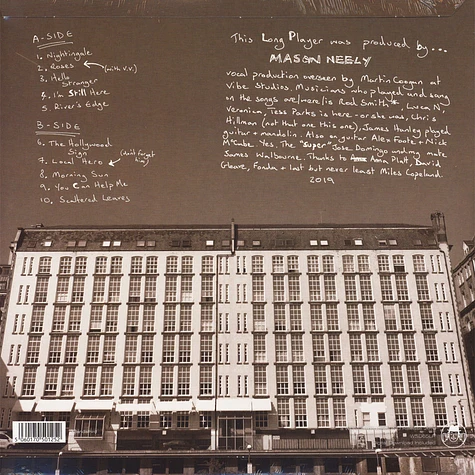 A-SIDE
1. Nightingale
2. Roses (with V.V.)
3. Hello
Stranger
4. I'm Still Here
5. River's Edge
B-SIDE
6. The Hollywood
Sign
7. Local Hero (don't forget
8. Morning Sun
9. You Can Help Me
10. Scattered Leaves
This Long Player was produced by...
MASON NEELY
vocal production overseen by Martin Coogan at
Vibe Studios. Musicians who played and sang
on the songs are/were/is Rod Smith, Luca N,
Veronica, Tess Parks is here - or she was, Chris
Hillman (not that one this one), James Hanley played
guitar + mandolin. Also on guitar Alex Foote + Nick
McCabe. Yes. The "super" Jose Domingo and ma mate
James Walbourne. Thanks to Anna Platt, David
Gleave, Fonda + last but never least Miles Copeland.
2019
5 060170 501252